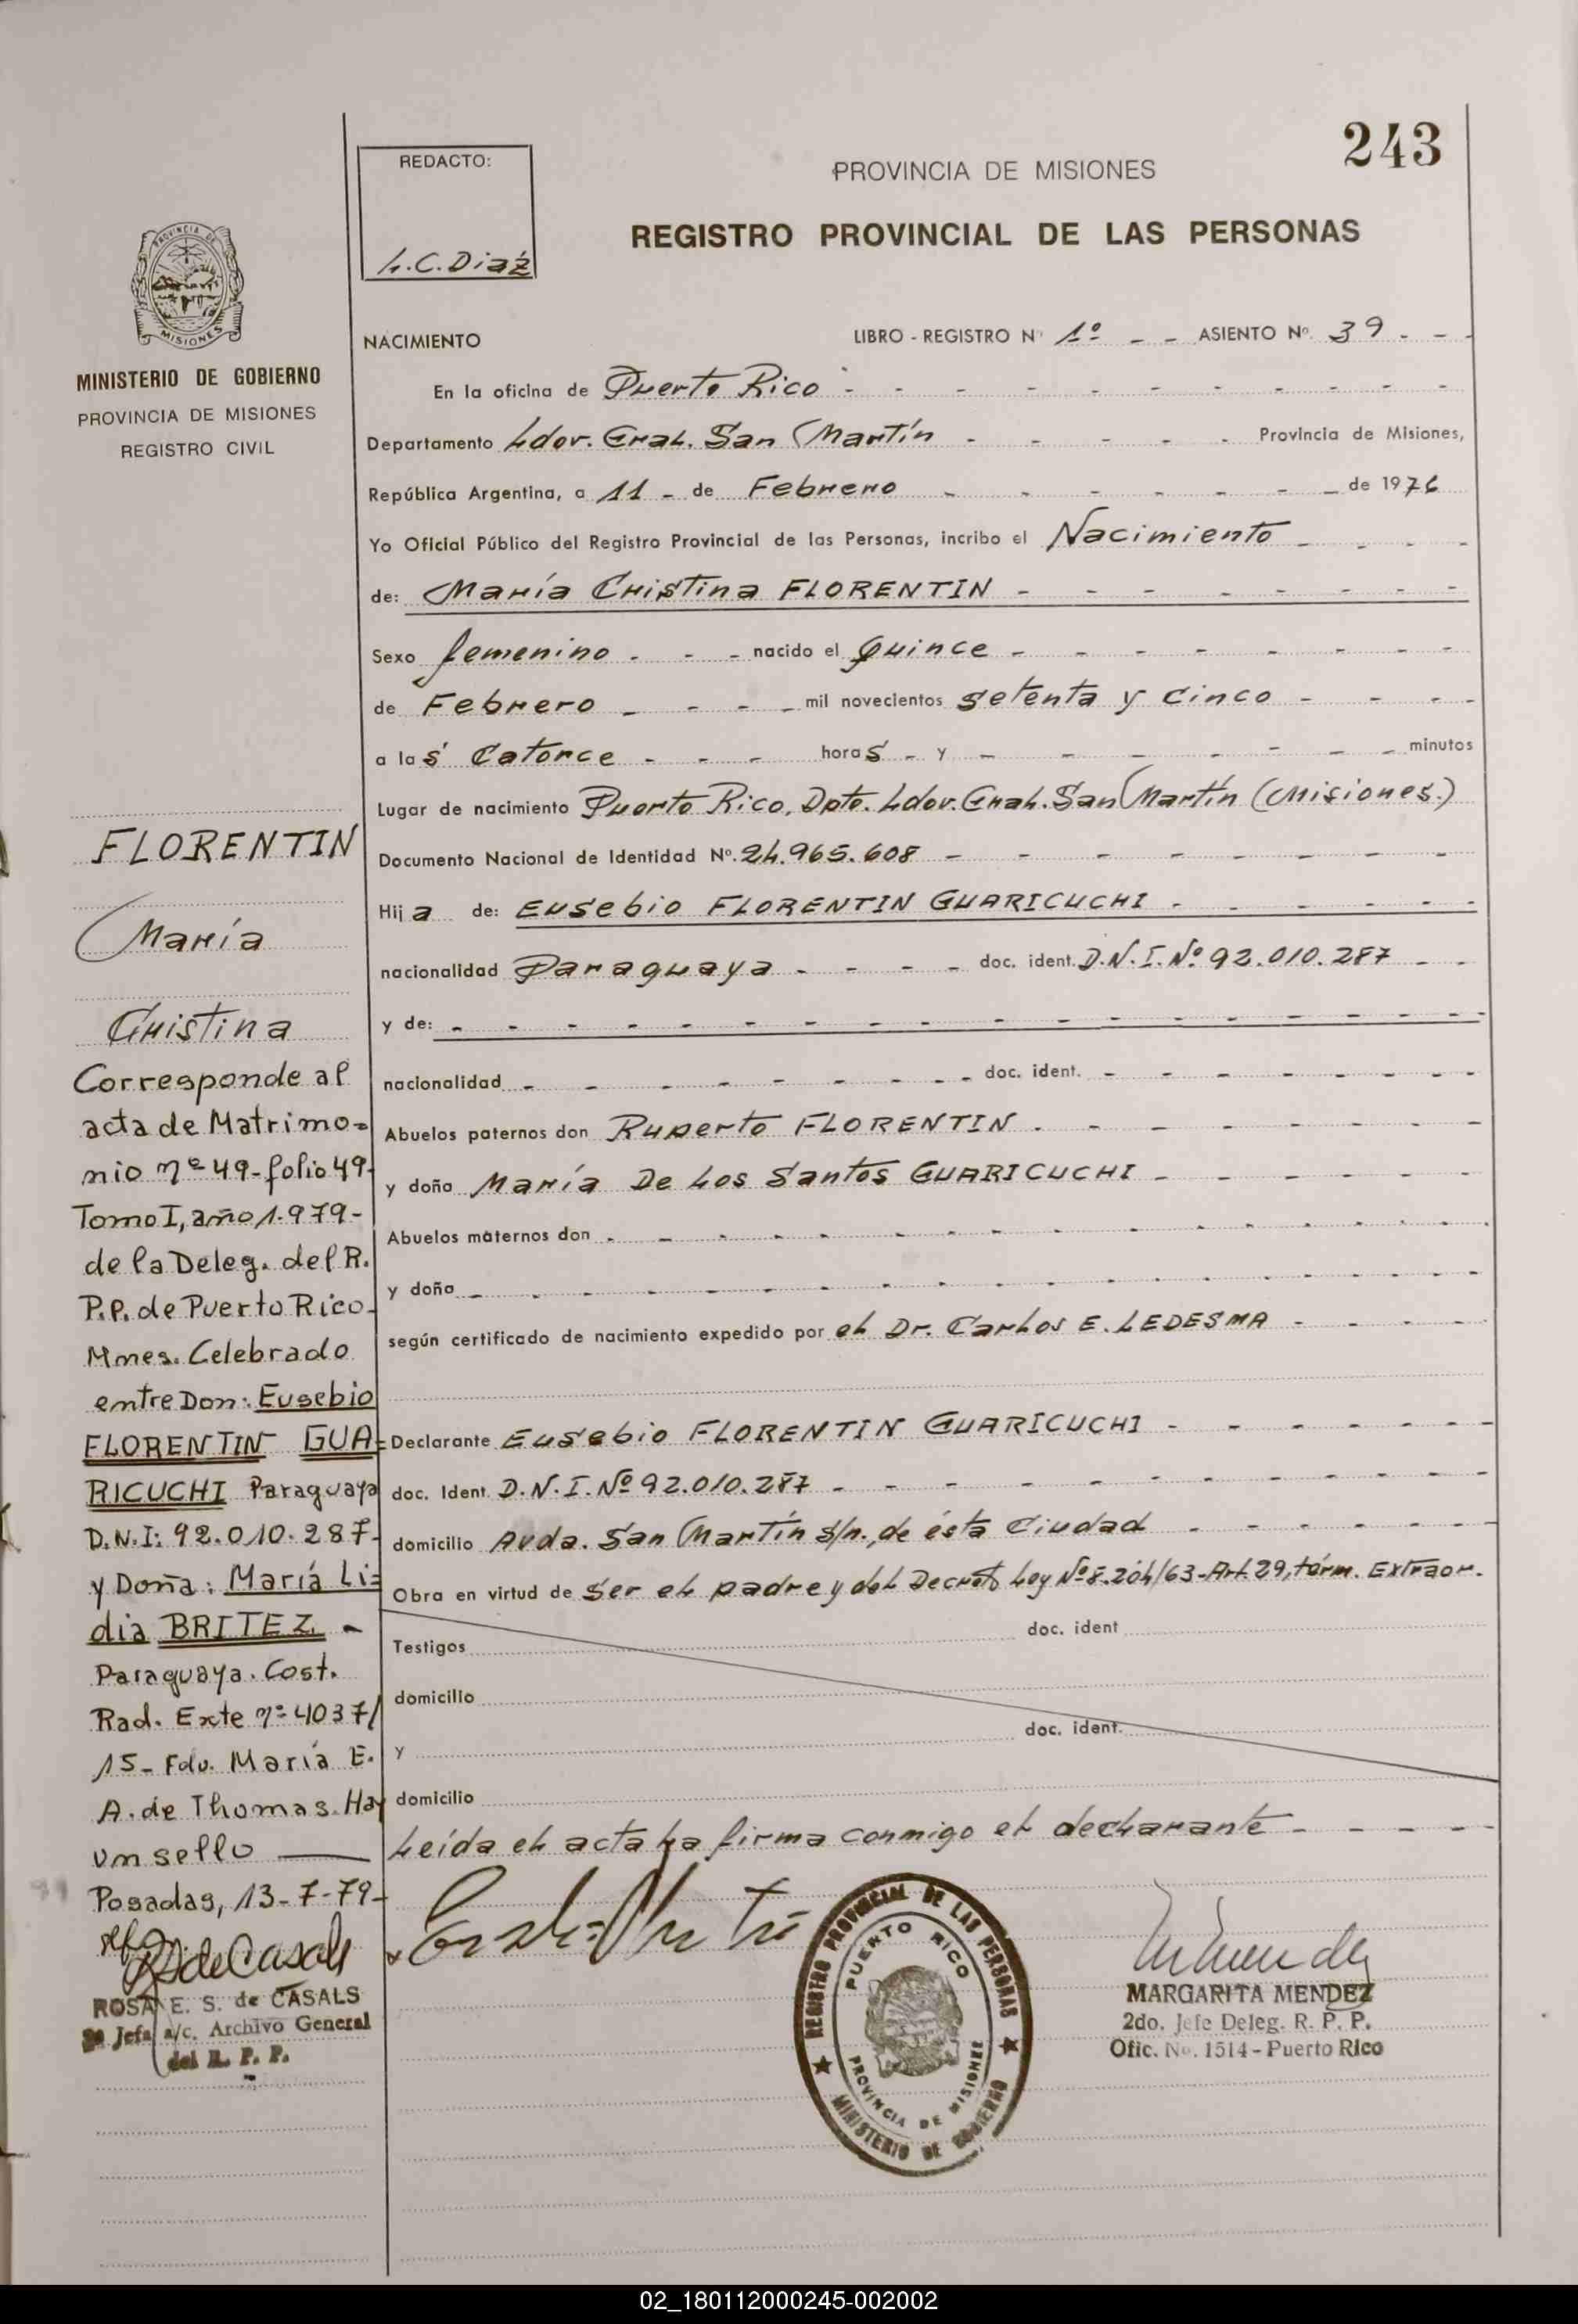 243
REDACTO:
L.C. Diaz
PROVINCIA DE MISIONES
REGISTRO PROVINCIAL DE LAS PERSONAS
PROVINCIA DE
MISIONES
MINISTERIO DE GOBIERNO
PROVINCIA DE MISIONES
REGISTRO CIVIL
NACIMIENTO LIBRO - REGISTRO Nº 1º - - ASIENTO Nº. 39 - - -
En la oficina de Puerto Rico - - - - - - - - - -
Departamento Ldor. Gral. San Martín - - - - - Provincia de Misiones,
República Argentina, a 11 - de Febrero - - - - - - de 1976
Yo Oficial Público del Registro Provincial de las Personas, incribo el Nacimiento - - - -
de: María Cristina FLORENTIN - - - - - - - -
Sexo femenino - - - nacido el quince - - - - - - - -
de Febrero - - - - mil novecientos setenta y cinco - - - -
a las catorce - - - horas - y - - - - - - - minutos
Lugar de nacimiento Puerto Rico, Dpto. Ldor. Gral. San Martín (Misiones.)
Documento Nacional de Identidad Nº. 24.965.608 - - - - - - - -
Hija de: Eusebio FLORENTIN GUARICUCHI - - - - - -
nacionalidad Paraguaya - - - - doc. ident. D.N.I. Nº 92.010.287 - -
y de: - - - - - - - - - - - - - - - - - -
nacionalidad - - - - - - - - doc. ident. - - - - - - -
Abuelos paternos don Ruperto FLORENTIN - - - - - - - -
y doña María De Los Santos GUARICUCHI - - - - - -
Abuelos maternos don - - - - - - - - - - - - - - -
y doña - - - - - - - - - - - - - - - - -
según certificado de nacimiento expedido por el Dr. Carlos E. LEDESMA - - - -
Declarante Eusebio FLORENTIN GUARICUCHI - - - - - -
doc. Ident. D.N.I. Nº 92.010.287 - - - - - - - - - -
domicilio Avda. San Martín s/n., de ésta Ciudad - - - - - -
Obra en virtud de ser el padre y del Decreto Ley Nº 8.204/63-Art. 29, térm. Extraor.
Testigos doc. ident
domicilio
y doc. ident.
domicilio
Leída el acta la firma conmigo el declarante - - - - -
REGISTRO PROVINCIAL DE LAS PERSONAS
PUERTO RICO
PROVINCIA DE MISIONES
MINISTERIO DE GOBIERNO
MARGARITA MENDEZ
2do. Jefe Deleg. R. P. P.
Ofic. No. 1514 - Puerto Rico
FLORENTIN
María
Cristina
Corresponde al
acta de Matrimo=
nio nº 49-folio 49-
Tomo I, año 1.979-
de la Deleg. del R.
P.P. de Puerto Rico-
Mnes. Celebrado
entre Don: Eusebio
FLORENTIN GUA=
RICUCHI Paraguaya
D.N.I: 92.010.287-
y Doña: María Li=
dia BRITEZ. -
Paraguaya. Cost.
Rad. Exte nº 4037/
15- Fdo. María E.
A. de Thomas. Hay
un sello
Posadas, 13-7-79-
ROSA E. S. de CASALS
Jefa a/c. Archivo General
del R. P. P.
02_180112000245-002002